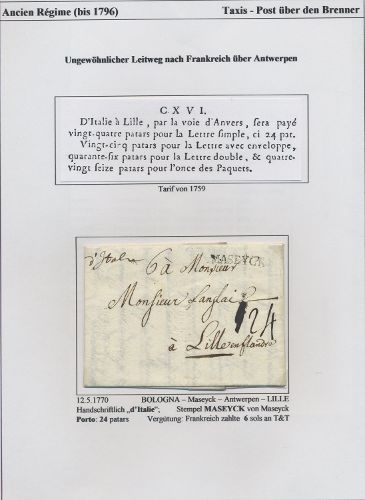 Ancien Régime (bis 1796) Taxis - Post über den Brenner
Ungewöhnlicher Leitweg nach Frankreich über Antwerpen
CXVI.
D'Italie à Lille, par la voie d'Anvers, sera payé
vingt-quatre patars pour la Lettre simple, ci 24 pat.
Vingt-cinq patars pour la Lettre avec enveloppe,
quarante-six patars pour la Lettre double, & quatre-
vingt seize patars pour l'once des Paquets.
Tarif von 1759
MASEYCK
d'Italie 6 à Monsieur
Monsieur Langlai
24
à Lille en flandre
12.5.1770 BOLOGNA – Maseyck – Antwerpen – LILLE
Handschriftlich „d'Italie"; Stempel MASEYCK von Maseyck
Porto: 24 patars Vergütung: Frankreich zahlte 6 sols an T&T